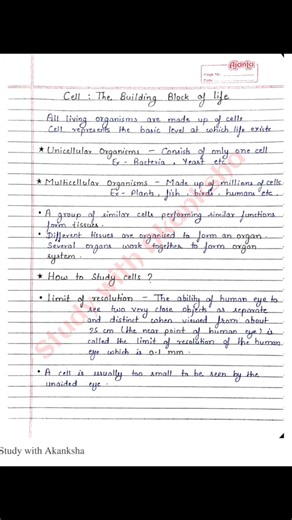 Ajanta
Page No.
Date
Cell : The Building Block of life
All living organisms are made up of cells
Cell represents the basic level at which life exists
★ Unicellular Organisms - Consist of only one cell
Ex - Bacteria, Yeast etc.
★ Multicellular Organisms - Made up of millions of cells
Ex - Plants, fish, birds, humans etc.
• A group of similar cells performing similar functions
form tissues.
• Different tissues are organised to form an organ.
Several organs work together to form organ
system.
★ How to Study cells ?
• Limit of resolution - The ability of human eye to
see two very close objects as separate
and distinct when viewed from about
25 cm (the near point of human eye) is
called the limit of resolution of the human
eye which is 0.1 mm.
• A cell is usually too small to be seen by the
unaided eye.
Study with Akanksha
Study with Akanksha